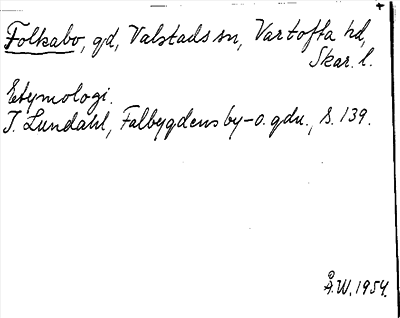 Folkabo, gd, Valstads sn, Vartofta hd,
Skar. l.
Etymologi.
I. Lundahl, Falbygdens by- o. gdn., s. 139.
Å.W. 1954.